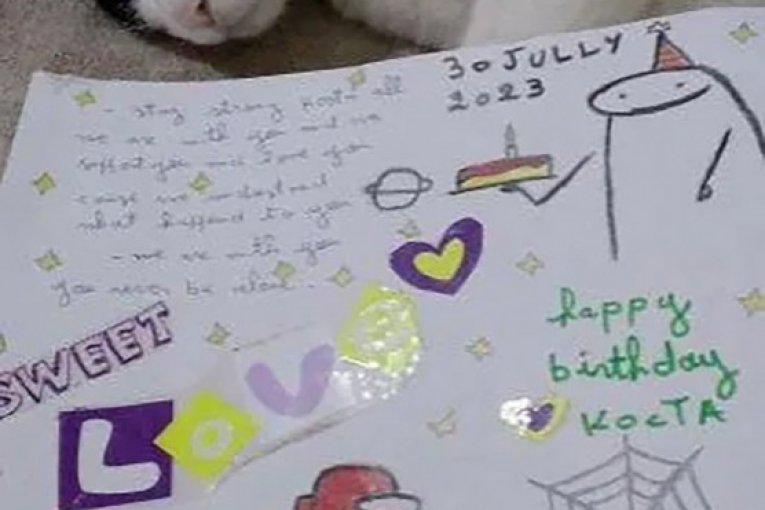 30 JULLY
2023
- stay strong Kosta all
we are with you and we
support you and love you
cause we understand
what happend to you
- we are with you
you never be alone..
SWEET
LOVe
happy
birthday
KOCTA